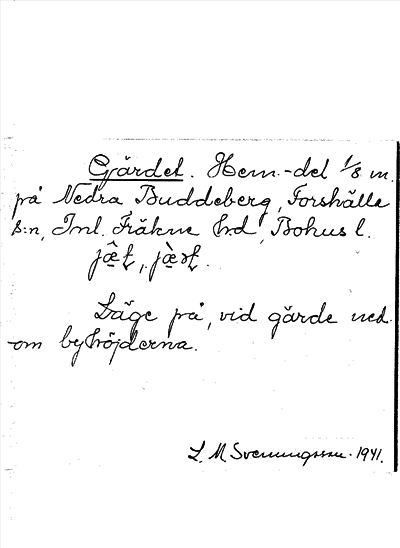 Gärdet. Hem.-del 1/8 m.
på Nedra Buddeberg, Forshälla
s:n, Inl. Fräkne hd, Bohus l.
Läge på, vid gärde ned-
om byhöjderna.
L. M Svenungsson. 1941.